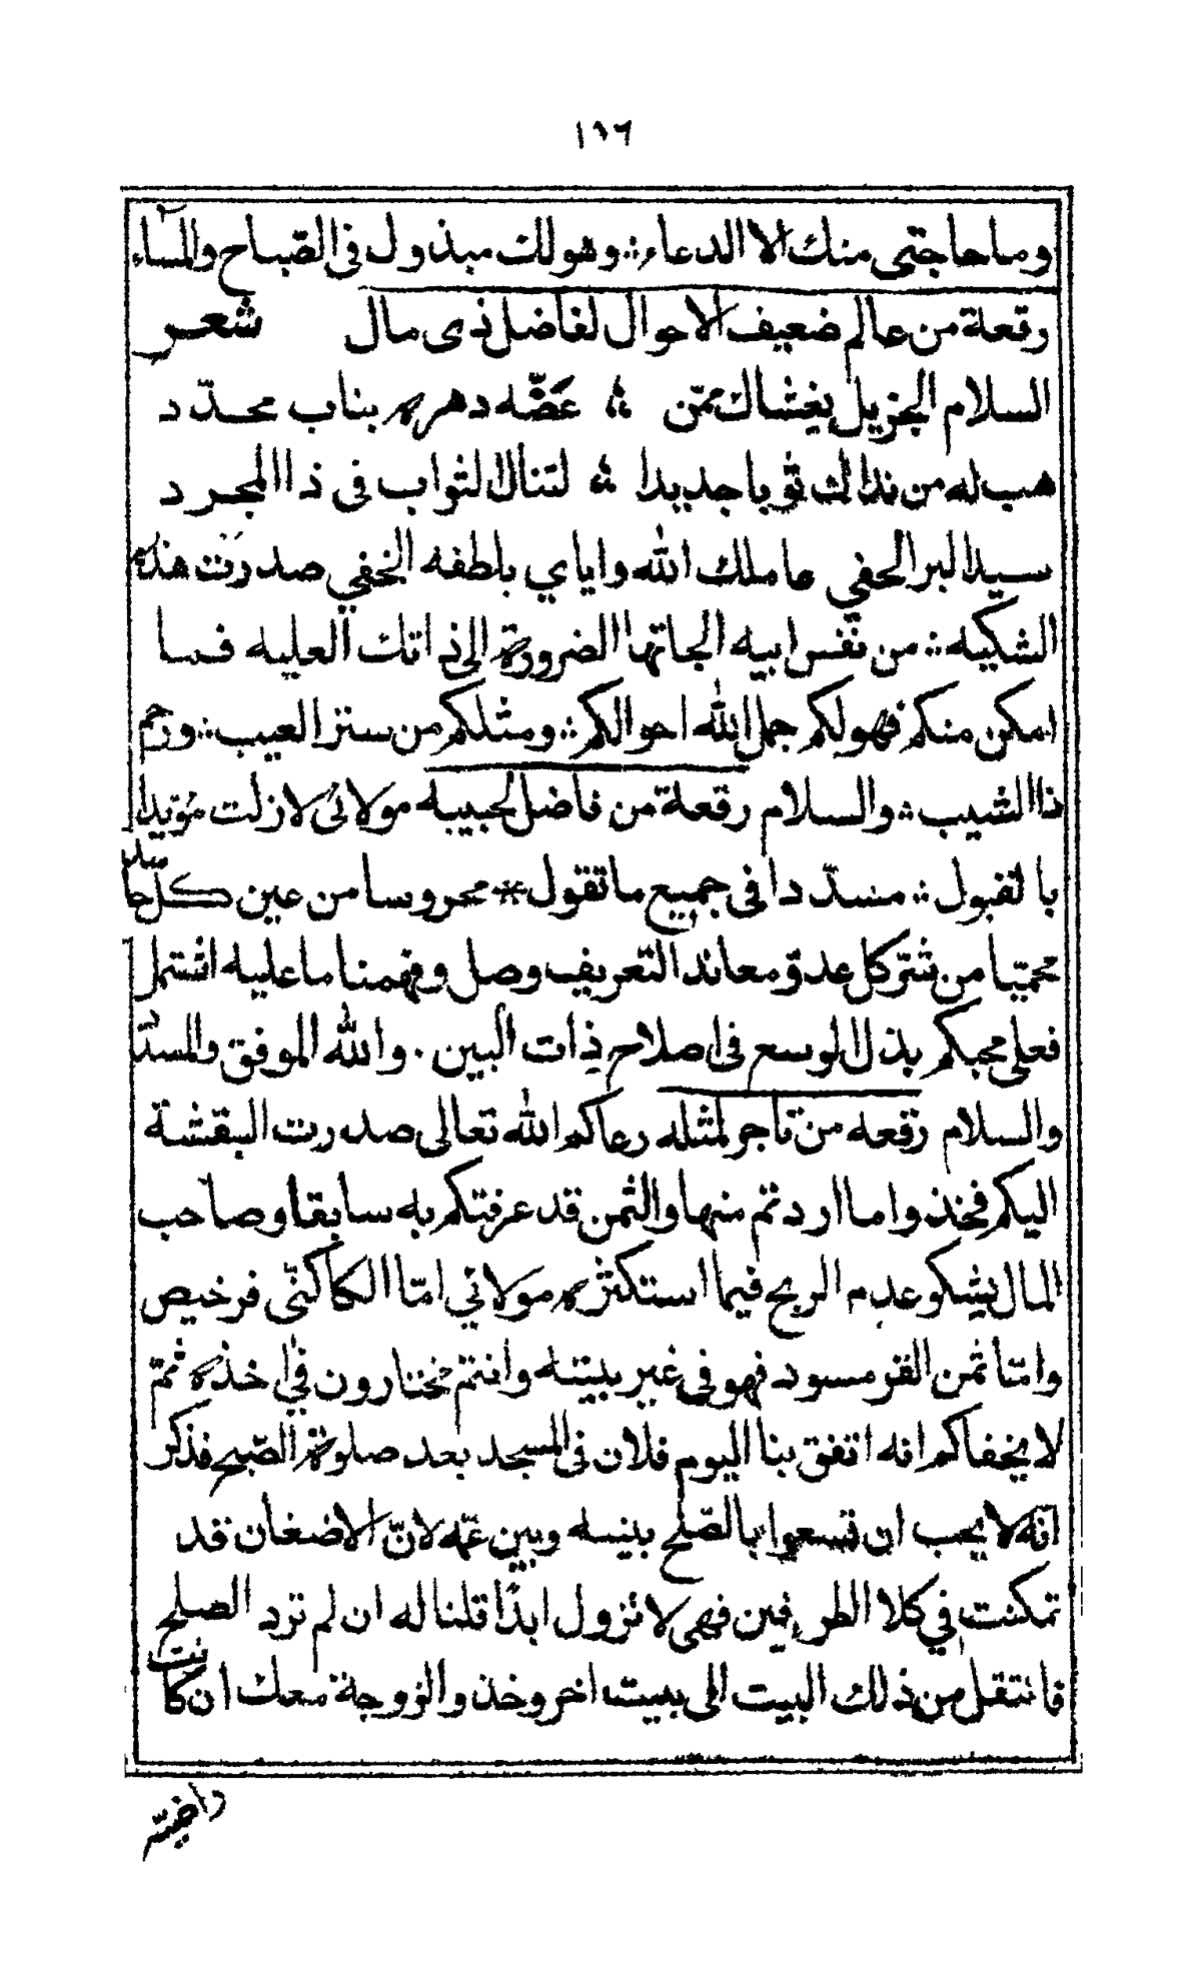 ١٩٦
وما حاجتى منك الا الدعاء ؞ وهو لك مبذول فى الصّباح والمسآء
رقعة من عالم ضعيف الاحوال لفاضل ذى مال شعر
السلام الجزيل يغشاك ممّن ؞ عَضّه دهره بناب محدّد
هب له من نداك ثوبا جديدا ؞ لتنال الثواب فى ذا المجرد
سيد البر الحفي عاملك الله واياي بلطفه الخفي صدرت هذه
الشكيه ؞ من نفس ابيه الجاتها الضرورة الى ذاتك العليه فما
امكن منكم فهو لكم جمل الله احوالكم ؞ ومثلكم من ستر العيب ؞ ورحم
ذا الشيب ؞ والسلام رقعة من فاضل لحبيبه مولائى لازلت مؤيدا
بالقبول ؞ مسدّدا فى جميع ما تقول * محروسا من عين كلّ حاسد
محميّا من شرّ كل عدوّ معاند التعريف وصل وفهمنا ما عليه اشتمل
فعلى محبكم بذل الوسع فى اصلاح ذات البين . والله الموفق والمستعان
والسلام رقعه من تاجر لمثله رعاكم الله تعالى صدرت البقشة
اليكم فخذوا ما اردتم منها والثمن قد عرفتكم به سابقا وصاحب
المال يشكو عدم الربح فيما استكثره مولائي امّا الكاكنّى فرخيص
وامّا ثمن القرمسود فهو فى غير بيته وانتم مختارون في اخذه ثمّ
لا يخفاكم انه اتفق بنا اليوم فلان فى المسجد بعد صلوة الصّبح فذكر
انه لا يحب ان تسعوا بالصّلح بينه وبين عمّه لانّ الاضغان قد
تمكنت في كلا الطرفين فهى لا تزول ابدًا قلنا له ان لم ترد الصلح
فانتقل من ذلك البيت الى بيت اخر وخذ والزوجة معك ان كانت
داضيّه